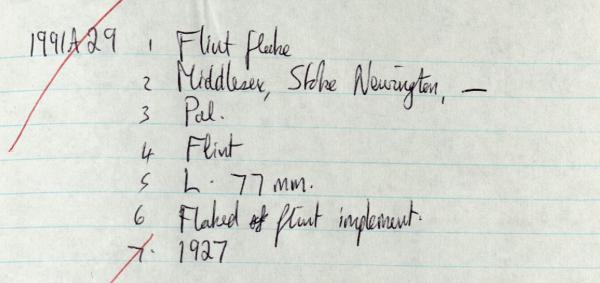 1991A29 1 Flint flake
2 Middlesex, Stoke Newington, —
3 Pal.
4 Flint
5 L. 77 mm.
6 Flaked flint implement.
7. 1927